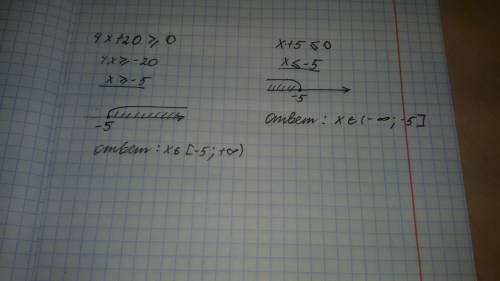 4x+20 ⩾ 0
4x ⩾ -20
x ⩾ -5
-5
ответ : x ∈ [-5 ; +∞)
x+5 ⩽ 0
x ⩽ -5
-5
ответ : x ∈ (-∞ ; -5]